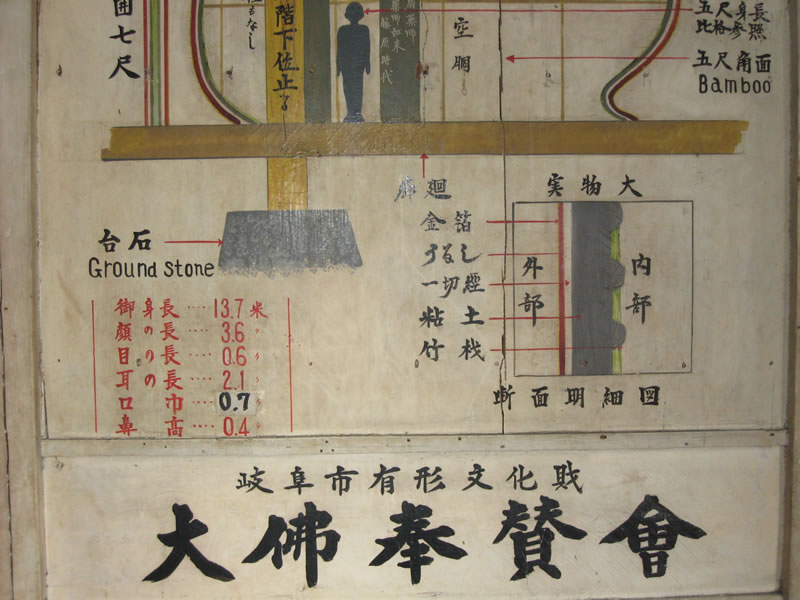 七尺
もなし
階下位止まる
薬師如来
藤原時代
空胴
五尺身長
比格参照
五尺角面
Bamboo
廻
実物大
金箔
うるし
一切經
粘土
竹桟
外部
内部
断面明細図
台石
Ground stone
御身長····13.7米
顔の長····3.6〃
目の長····0.6〃
耳の長····2.1〃
口巾····0.7〃
鼻高····0.4〃
岐阜市有形文化財
大佛奉賛會